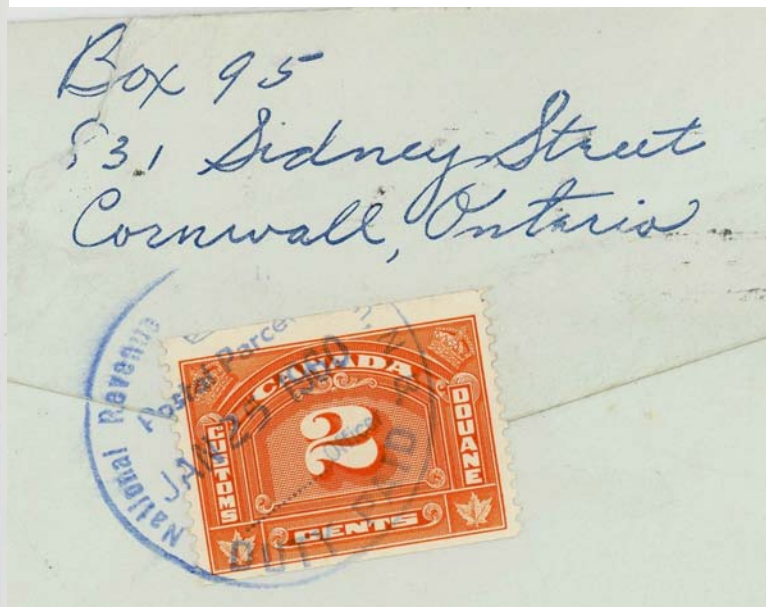 Box 95
831 Sidney Street
Cornwall, Ontario
National Revenue
Postal Parcel
JAN 25
Officer
DUTY PAID
CANADA
CUSTOMS
2
DOUANE
CENTS